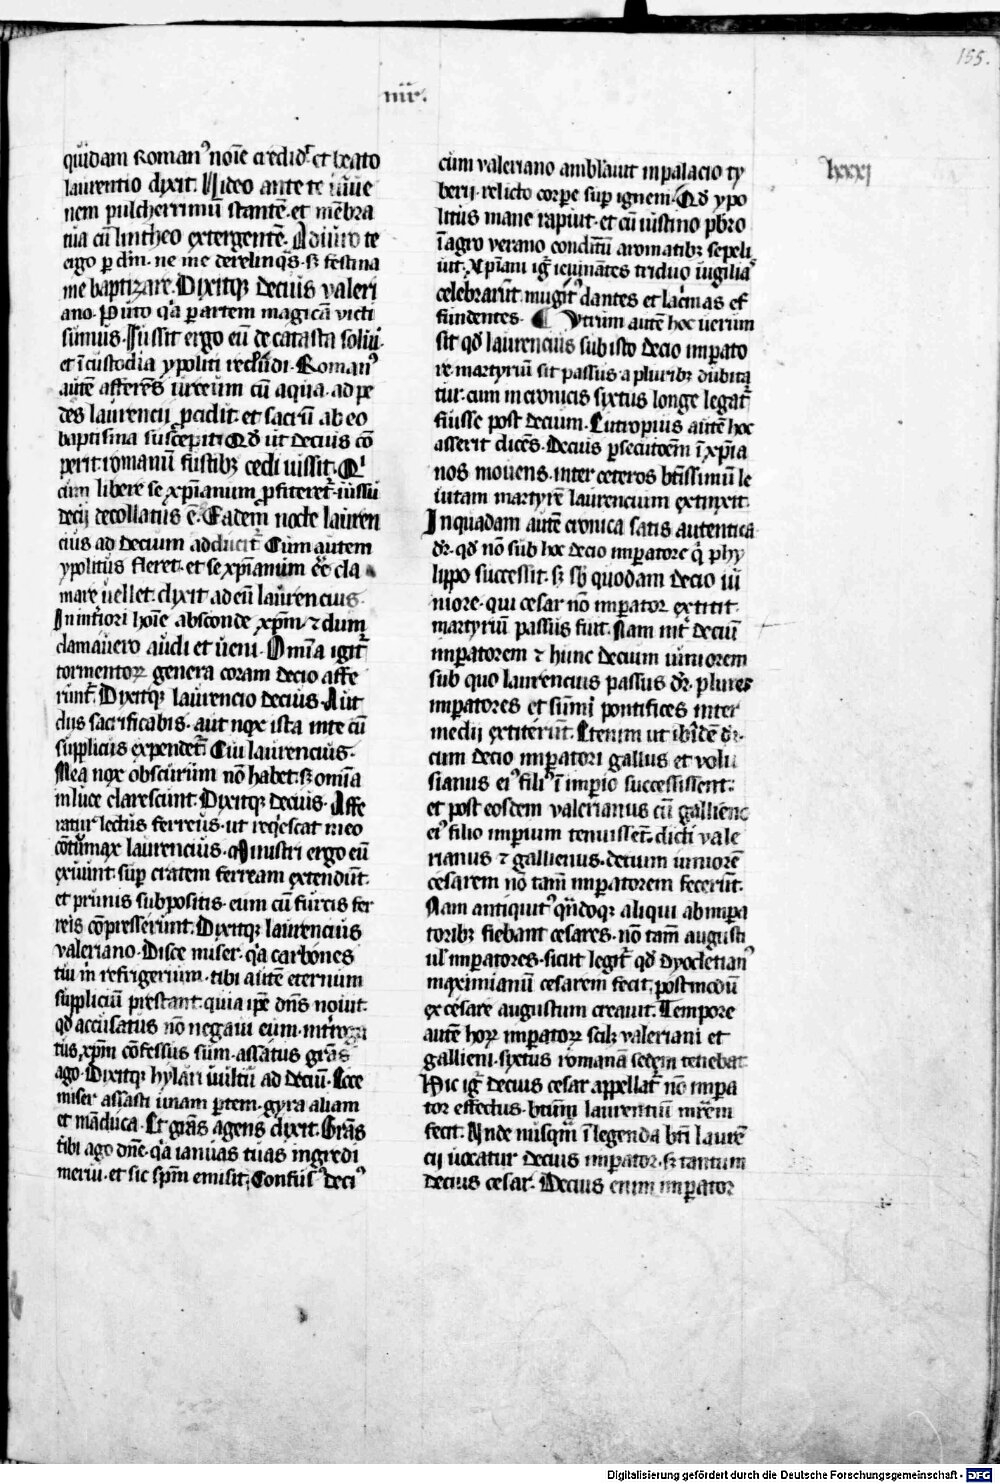 155.
iiii.
lxxxi
quidam Romanꝰ noīe credidˀ et beato
laurentio dixit. Uideo ante te iuue
nem pulcherrimū stantē. et mēbra
tua cū lintheo extergentē. Adiuro te
ego ꝑ dm̄. ne me derelinq̄s. sꝫ festina
me baptizare. Dixitqꝫ decius valeri
ano. Puto qͥa ꝑ artem magicā victi
sumus. Iussit ergo eū de catasta solui.
et ī custodia ypoliti recludi. Romanꝰ
autē afferēs urceum cū aqua. ad pe
des laurencij ꝓcidit. et sacrū ab eo
baptisma suscepit. Qd̄ ut decius cō
perit. romanū fustibꝫ cedi iussit. Qͥ
cum libere se xp̄ianum ꝓfiteret̄. iussu
decij decollatus ē. Eadem nocte lauren
cius ad decium adducit̄. Cum autem
ypolitus fleret. et se xp̄ianum eē cla
mare uellet. dixit ad eū laurencius.
In int̄iori hoīe absconde xp̄m. ⁊ dum
clamauero audi et ueni. Omīa igit̄
tormentoꝝ genera coram decio affe
runt̄. Dixitqꝫ laurencio decius. Aut
diis sacrificabis. aut nox ista in te cū
suppliciis expendet̄. Cui laurencius.
Mea nox obscurum nō habet. sꝫ omīa
in luce clarescunt. Dixitqꝫ decius. Affe
ratur lectus ferreus. ut req̄escat in eo
cōtumax laurencius. Ministri ergo eū
exuunt. suꝑ cratem ferream extendūt.
et prunis subpositis. eum cū furcis fer
reis cōpresserunt. Dixitqꝫ laurencius
valeriano. Disce miser. qͥa carbones
tui m̄ refrigerium. tibi autē eternum
suppliciū prestant. quia ip̄e dn̄s nouit.
qd̄ accusatus nō negaui eum. int̄roga
tus xp̄m cōfessus sum. assatus grās
ago. Dixitqꝫ hylari uultu ad deciū. Ecce
miser assasti unam ꝑtem. gyra aliam
et māduca. Et grās agens dixit. Grās
tibi ago dn̄e. qͥa ianuas tuas ingredi
merui. et sic sp̄m emisit. Confusꝰ deciꝰ
cum valeriano amblauit in palacio ty
berij. relicto corpe suꝑ ignem. Qd̄ ypo
litus mane rapuit. et cū iustino pb̄ro
ī agro verano conditū aromatibꝫ sepeli
uit. Xp̄iani igͥ ieiunātes triduo uigiliā
celebrarūt. mugitˀ dantes et lacͥmas ef
fundentes. ¶ Utrum autē hoc uerum
sit qd̄ laurencius sub isto decio impato
re martyriū sit passus a pluribꝫ dubita
tur. cum in cronicis sixtus longe legat̄
fuisse post decium. Eutropius autē hoc
asserit dicēs. Decius ꝑsecutōem ī xp̄ia
nos mouens. inter ceteros btīssimū le
uitam martyrē laurencium extinxit.
In quadam autē cronica satis autentica
dr̄. qd̄ nō sub hoc decio imꝑatore qͥ phy
lippo successit. sꝫ sb̄ quodam decio iu
niore. qui cesar nō imꝑator extitit.
martyriū passus fuit. Nam int̄ deciū
imꝑatorem ⁊ hunc decium iuniorem
sub quo laurencius passus dr̄. plures
imꝑatores et sūmi pontifices inter
medii extiterūt. Etenim ut ibīdē dr̄.
cum decio imꝑatori gallus et volu
sianus eiꝰ filiꝰ ī imꝑio successissent.
et post eosdem valerianus cū gallieno
eiꝰ filio imꝑium tenuissēt. dicti vale
rianus ⁊ gallienus. decium iuniorē
cesarem nō tam̄ imꝑatorem fecerūt.
Nam antiquitˀ qn̄doqꝫ aliqui ab imꝑa
toribꝫ fiebant cesares. nō tam̄ augusti
ul̄ imꝑatores. sicut legit̄ qd̄ dyocletianꝰ
maximianū cesarem fecit. postmodū
ex cesare augustum creauit. Tempore
autē hoꝝ imꝑatoꝝ scilꝫ valeriani et
gallieni. sixtus romanā sedem tenebat.
Hic igͥ decius cesar appellat̄ nō imꝑa
tor effectus. btūm laurentiū mr̄em
fecit. Unde nusqm̄ ī legenda btī laurē
cij uocatur decius imꝑator. sꝫ tantum
decius cesar. Decius enim imꝑator
Digitalisierung gefördert durch die Deutsche Forschungsgemeinschaft - DFG